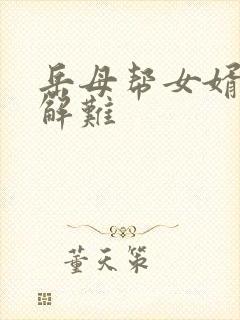 岳母帮女婿
解难
董天策